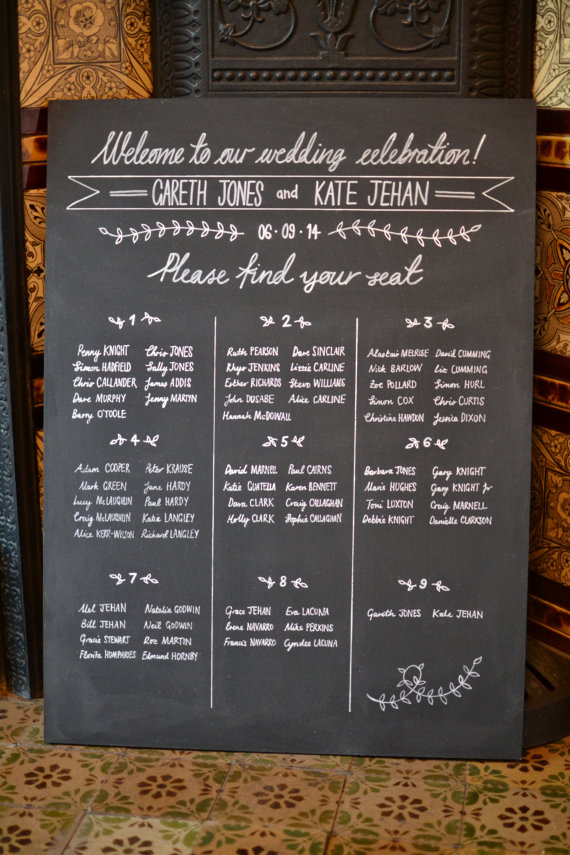 Welcome to our wedding celebration!
GARETH JONES and KATE JEHAN
06·09·14
Please find your seat
1
Penny KNIGHT Chris JONES
Simon HADFIELD Sally JONES
Chris CALLANDER James ADDIS
Dave MURPHY Jenny MARTYN
Barry O'TOOLE
2
Ruth PEARSON Dave SINCLAIR
Rhys JENKINS Lizzie CARLINE
Esther RICHARDS Steve WILLIAMS
John DUSABE Alice CARLINE
Hannah McDOWALL
3
Alastair MELROSE David CUMMING
Nick BARLOW Liz CUMMING
Zoe POLLARD Simon HURL
Simon COX Chris CURTIS
Christine HAWDON Jessica DIXON
4
Adam COOPER Peter KRAUSE
Mark GREEN Jane HARDY
Lucy McLAUGHLIN Paul HARDY
Craig McLAUGHLIN Katie LANGLEY
Alice KERR-WILSON Richard LANGLEY
5
David MARNEL Paul CAIRNS
Katie Karen BENNETT
Dava CLARK Craig CALLAGHAN
Holly CLARK Sophie CALLAGHAN
6
Barbara JONES Gary KNIGHT
Marie HUGHES Gary KNIGHT Jr
Toni LUXTON Craig MARNELL
Debbie KNIGHT Danielle CLARKSON
7
Mel JEHAN Natalia GODWIN
Bill JEHAN Neil GODWIN
Gracie STEWART Roz MARTIN
Florita HUMPHRIES Edmund HORNBY
8
Grace JEHAN Eva LACUNA
Irene NAVARRO Mike PERKINS
Francis NAVARRO Cyndee LACUNA
9
Gareth JONES Kate JEHAN